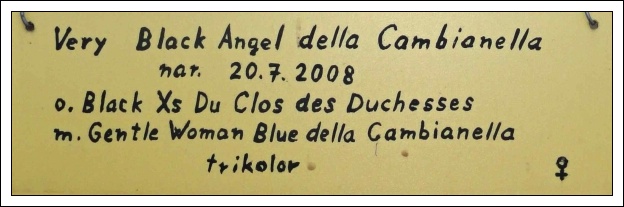 Very Black Angel della Cambianella
nar. 20.7.2008
o. Black Xs Du Clos des Duchesses
m. Gentle Woman Blue della Cambianella
trikolor ♀